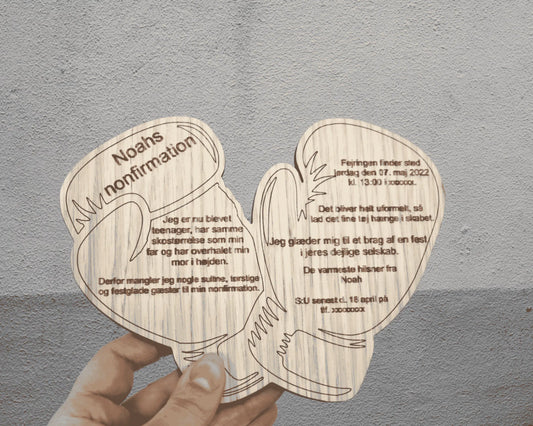 Noahs
nonfirmation
Jeg er nu blevet
teenager, har samme
skostørrelse som min
far og har overhalet min
mor i højden.
Derfor mangler jeg nogle sultne, tørstige
og festglade gæster til min nonfirmation.
Fejringen finder sted
lørdag den 07. maj 2022
kl. 13:00 i xxxxxxx.
Det bliver helt uformelt, så
lad det fine tøj hænge i skabet.
Jeg glæder mig til et brag af en fest
i jeres dejlige selskab.
De varmeste hilsner fra
Noah
S.U senest d. 18 april på
tlf. xxxxxxxx